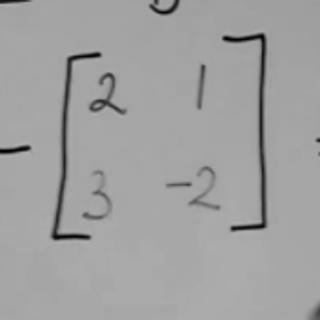 - [2 1
3 -2]